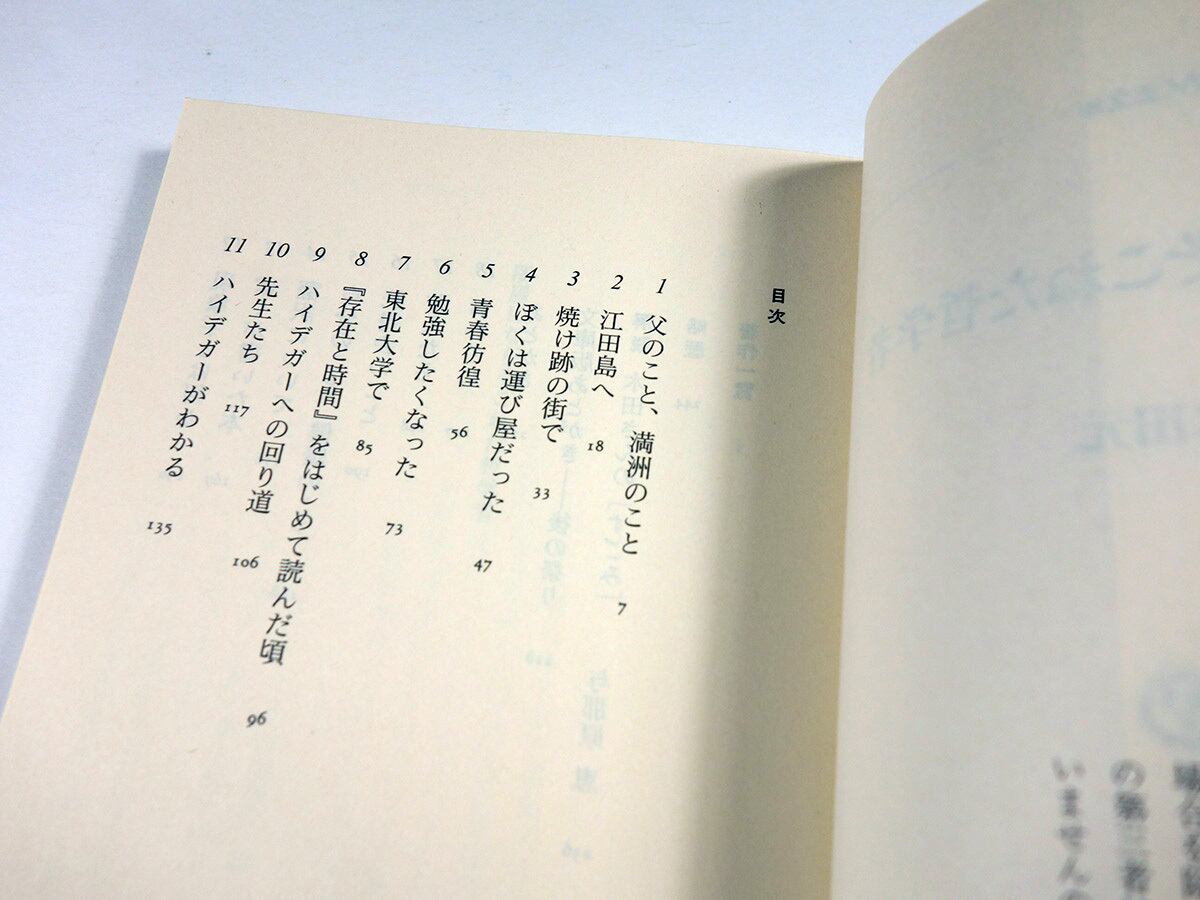 目次
1 父のこと、満洲のこと 7
2 江田島へ 18
3 焼け跡の街で 33
4 ぼくは運び屋だった 47
5 青春彷徨 56
6 勉強したくなった 73
7 東北大学で 85
8 『存在と時間』をはじめて読んだ頃 96
9 ハイデガーへの回り道 106
10 先生たち 117
11 ハイデガーがわかる 135
の第三者
いません